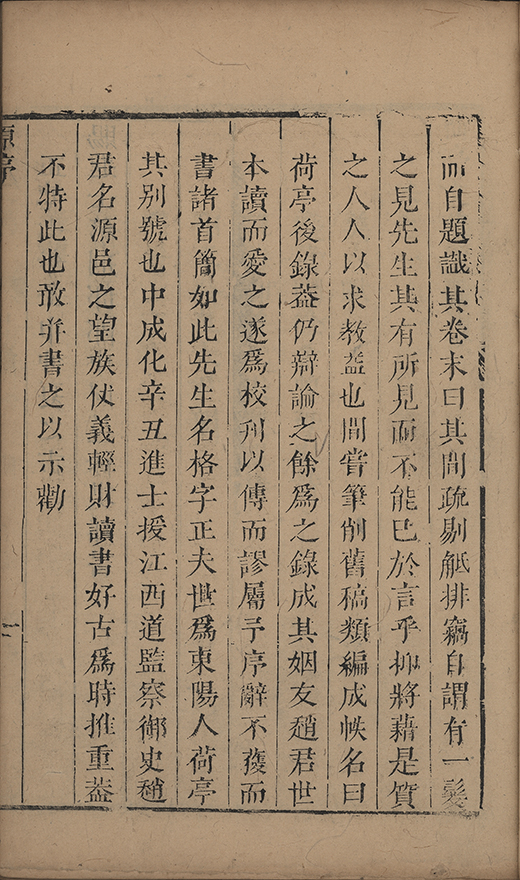 而自題識其卷末曰其間疏剔觝排竊自謂有一髮
之見先生其有所見而不能已於言乎抑將藉是質
之人人以求教益也間嘗筆削舊稿類編成帙名曰
荷亭後錄葢仍辯論之餘爲之錄成其姻友趙君世
本讀而愛之遂爲校刊以傳而謬屬予序辭不獲而
書諸首簡如此先生名格字正夫世爲東陽人荷亭
其别號也中成化辛丑進士授江西道監察御史趙
君名源邑之望族伏義輕財讀書好古爲時推重葢
不特此也敢并書之以示勸